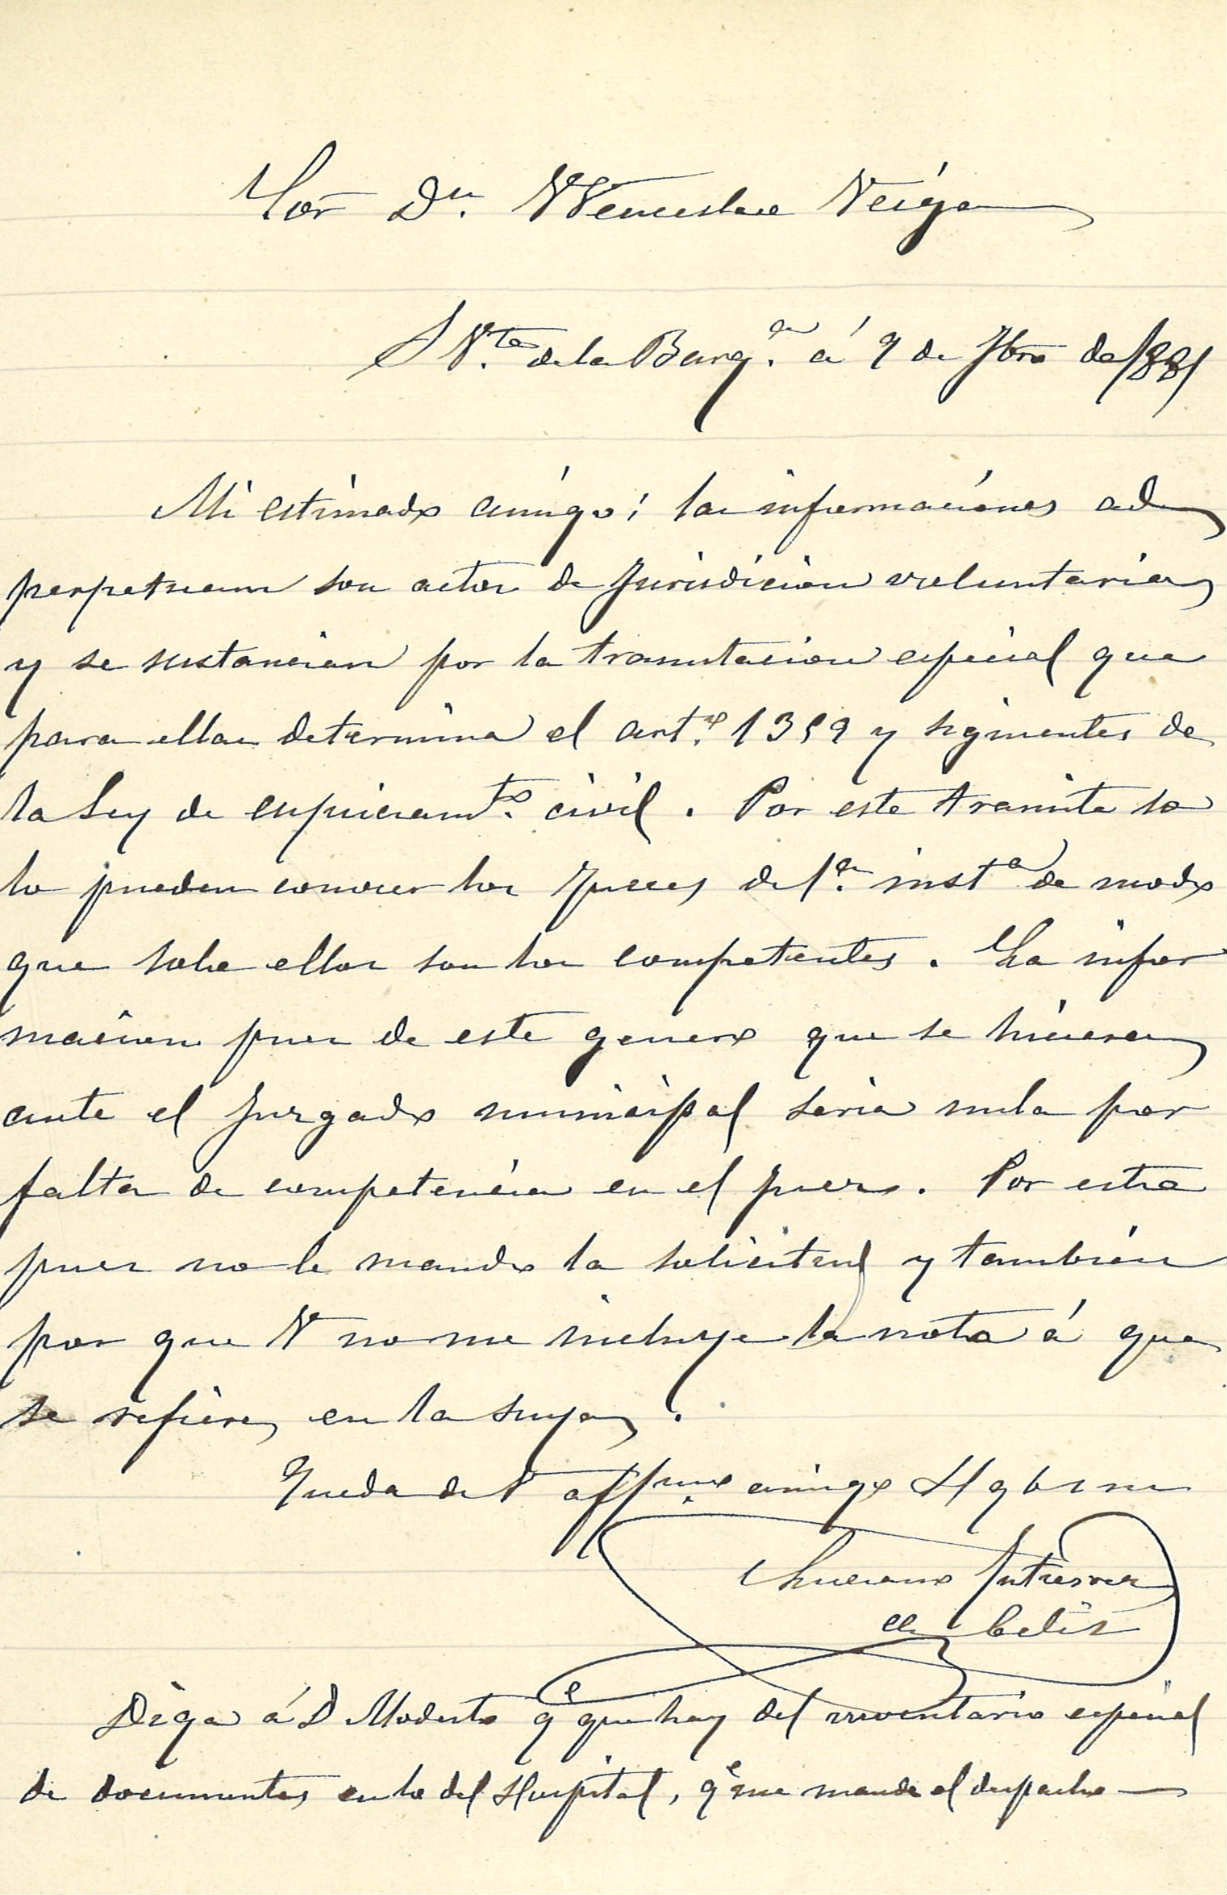 Sor Dn. Wenceslao Veiga
S Vte de la Barqa. á 9 de 7bre de 1881
Mi estimado amigo: las informaciones ad
perpetuam son actos de Jurisdicion voluntaria
y se sustancian por la tramitacion especial que
para ellas determina el arto. 1359 y siguientes de
la Ley de enjuiciamto. civil. Por este tramite so
lo pueden conocer los Jueces de 1a. insta de modo
que solo ellos son los competentes. La infor
macion pues de este genero que se hiciera
ante el Juzgado municipal seria nula por
falta de competencia en el juez. Por esto
pues no le mando la solicitud y tambien
por que V no me incluye la nota á que
se refiere en la suya.
Queda de V affmo amigo S q b s m
Gutierrez
de Celis
Diga á D Modesto qe que hay del inventario especial
de documentos en lo del Hospital, qe me mande el despacho